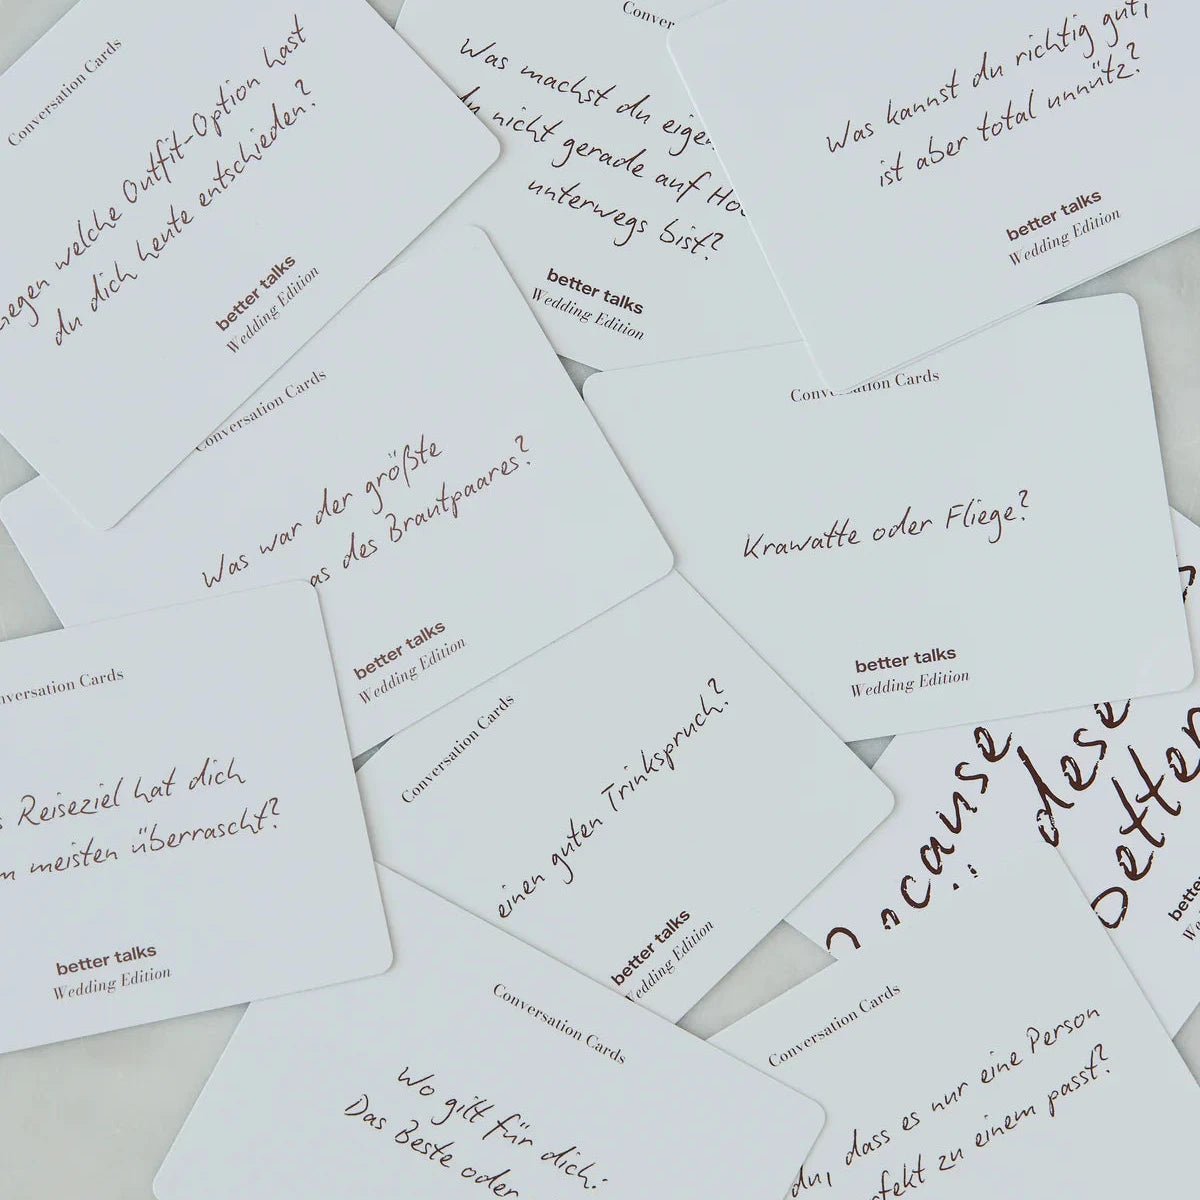 Conversation Cards
welche Outfit-Option hast
du dich heute entschieden?
better talks
Wedding Edition
Was machst du
nicht gerade auf
unterwegs bist?
better talks
Wedding Edition
Was kannst du richtig gut,
ist aber total unnütz?
better talks
Wedding Edition
Conversation Cards
Was war der größte
des Brautpaares?
better talks
Wedding Edition
Cards
Krawatte oder Fliege?
better talks
Wedding Edition
Conversation Cards
Reiseziel hat dich
meisten überrascht?
better talks
Wedding Edition
Conversation Cards
einen guten Trinkspruch?
better talks
Wedding Edition
Conversation Cards
Wo gilt für dich:
Das Beste oder
Conversation Cards
du, dass es nur eine Person
zu einem passt?